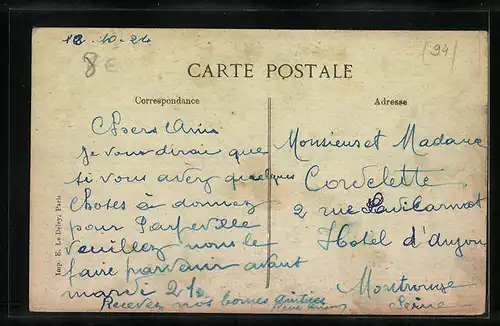 18-10-24
8€
(94)
CARTE POSTALE
Correspondance
Adresse
Chers Amis
Je vous dirai que
si vous avez quelques
choses à donnez
pour Parfeville
veuillez nous le
faire parvenir avant
mardi 21.
Recevez nos bonnes amitiés
Monsieur et Madame
Cordelette
2 rue Sadi Carnot
Hotel d'Anjou
Montrouge
Seine
Imp. E. Le Deley, Paris